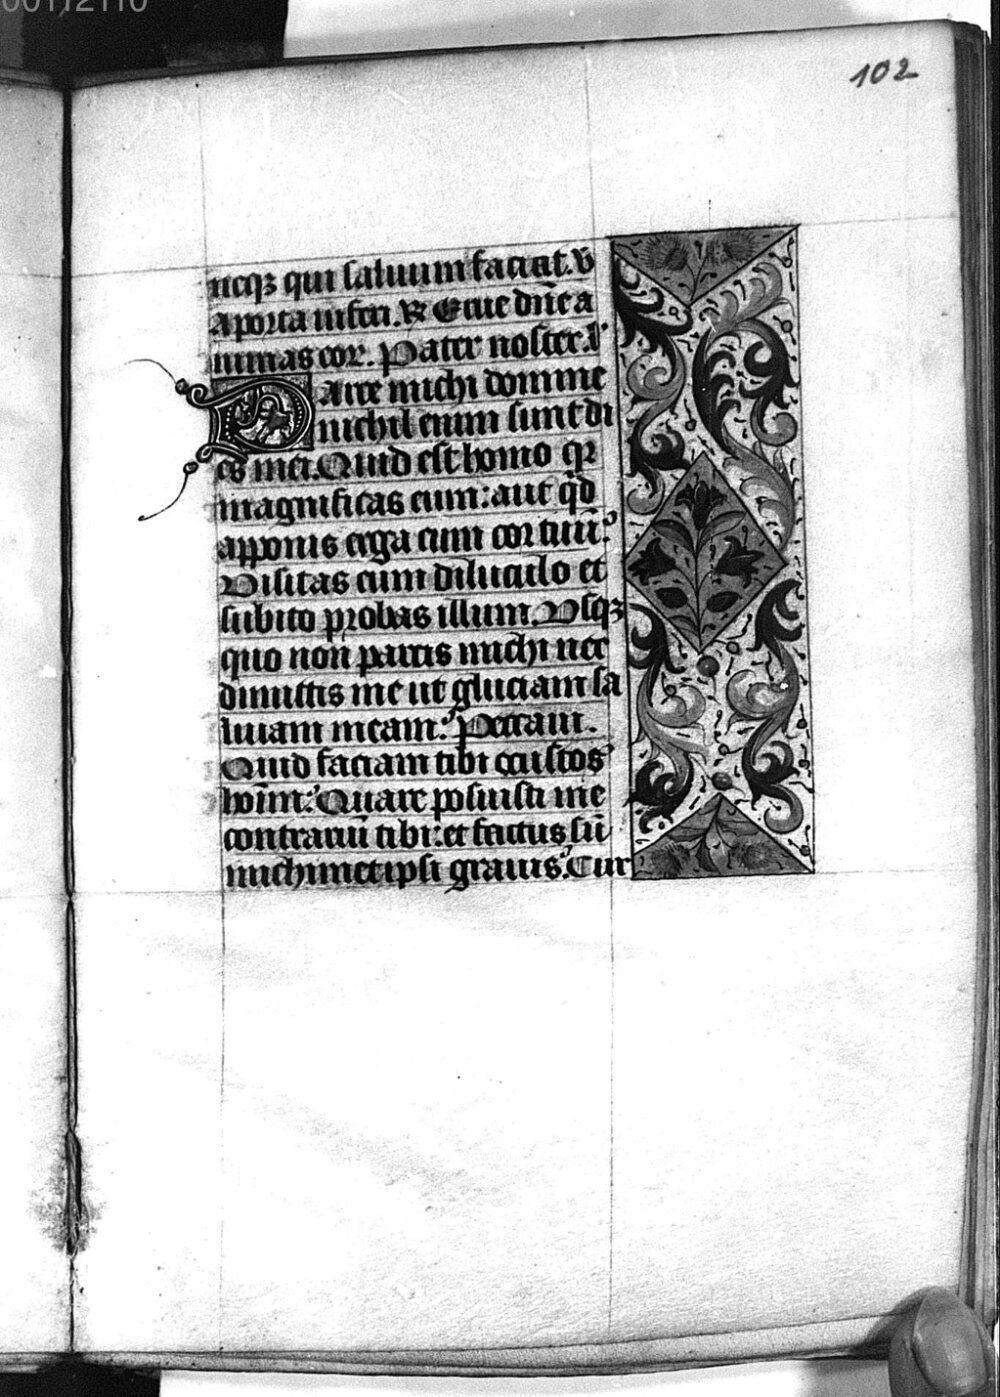 102
neq3 qui saluum faciat. v̄
A porta inferi. R Erue dn̄e a
nimas eor. Pater noster. l'
Parce michi domine
nichil enim sunt di
es mei. Quid est homo qr
magnificas eum: aut q̄d
apponis erga eum cor tuū?
Visitas eum diluculo et
subito probas illum. Vsq3
quo non parcis michi nec
dimittis me ut gluciam sa
liuam meam? Peccaui.
Quid faciam tibi o custos
hoīm? Quare posuisti me
contrariū tibi: et factus sū
michimetipsi grauis? Cur